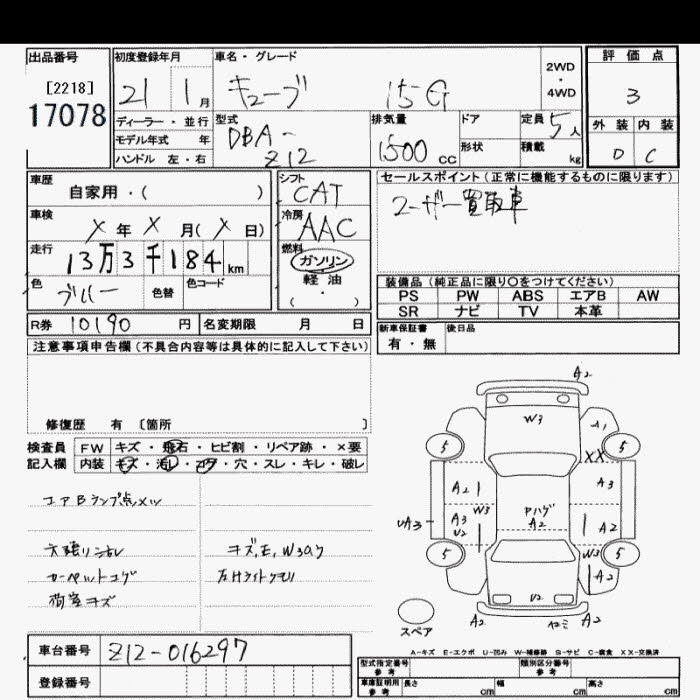 出品番号
[2218]
17078
初度登録年月
21 1 月
ディーラー・並行
モデル年式 年
ハンドル 左・右
車名・グレード
キューブ 15G
2WD
・
4WD
型式
DBA-
Z12
排気量
1500 cc
ドア
形状
定員 5 人
積載 kg
評価点
3
外装 内装
D C
車歴
自家用・( )
車検
X 年 X 月(X 日)
走行
13万3千184 km
色
ブルー
色替
色コード
シフト
CAT
冷房
AAC
燃料
ガソリン
軽油
( ・ )
R券 10190 円
名変期限 月 日
セールスポイント(正常に機能するものに限ります)
ユーザー買取車
装備品(純正品に限り○をつけてください)
PS PW ABS エアB AW
SR ナビ TV 本革
新車保証書
有・無
後日品
注意事項申告欄(不具合内容等は具体的に記入して下さい)
修復歴 有 〔箇所 〕
検査員
記入欄
FW キズ・飛石・ヒビ割・リペア跡・×要
内装 キズ・汚レ・コゲ・穴・スレ・キレ・破レ
エアBランプ点メツ
天張リ
カーペットコゲ
荷室キズ
キズ,E,W3あり
左ハライトクモリ
A2
W3
A1
5
5
XX
A2
A3
W3
UA3
A3
U2
Pハゲ
A2
A2
5
5
W3
A2
U2
スペア
A2
A2
A2
A-キズ E-エクボ U-凹み W-補修跡 S-サビ C-腐食 XX-交換済
車台番号
Z12-016297
登録番号
型式指定番号
参考
類別区分番号
参考
車庫証明用
参考
長さ cm
幅 cm
高さ cm